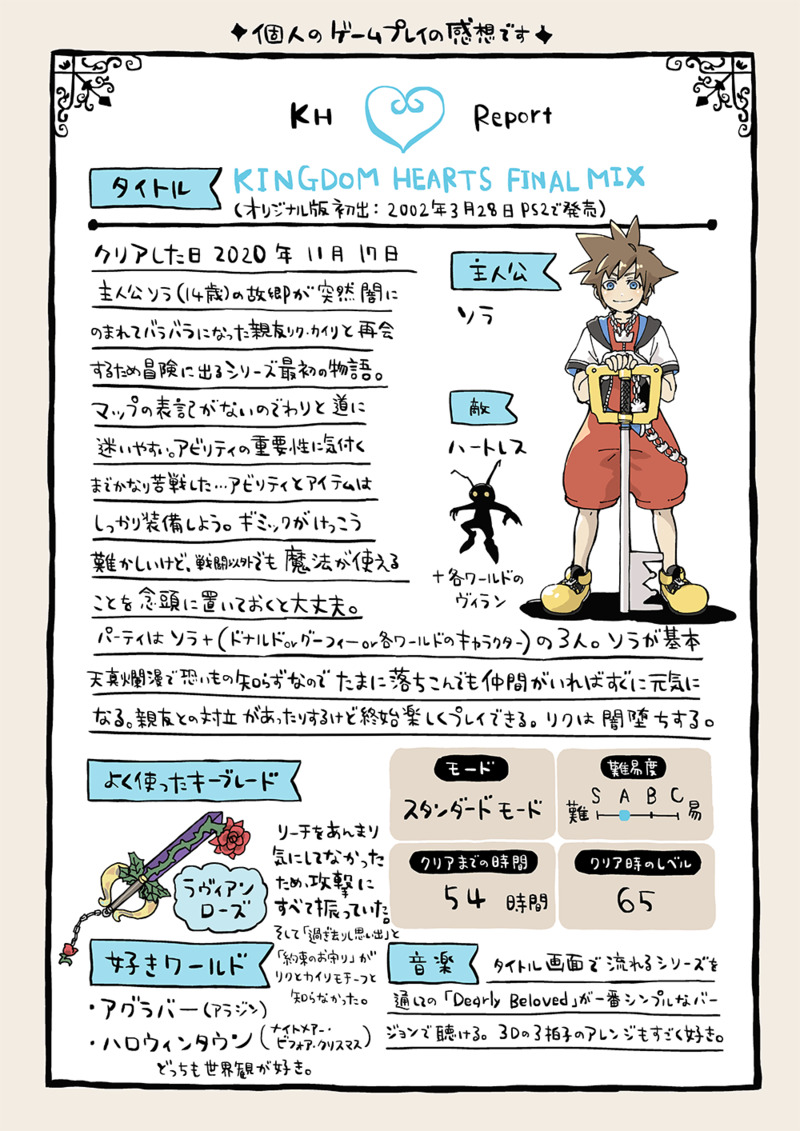 ✦個人のゲームプレイの感想です✦
KH Report
タイトル
KINGDOM HEARTS FINAL MIX
(オリジナル版初出：2002年3月28日PS2で発売)
クリアした日 2020年 11月 17日
主人公ソラ(14歳)の故郷が突然闇に
のまれてバラバラになった親友リク・カイリと再会
するため冒険に出るシリーズ最初の物語。
マップの表記がないのでわりと道に
迷いやすい。アビリティの重要性に気付く
までかなり苦戦した…アビリティとアイテムは
しっかり装備しよう。ギミックがけっこう
難かしいけど、戦闘以外でも魔法が使える
ことを念頭に置いておくと大丈夫。
パーティはソラ+(ドナルドorグーフィーor各ワールドのキャラクター)の3人。ソラが基本
天真爛漫で恐いもの知らずなのでたまに落ちこんでも仲間がいればすぐに元気に
なる。親友との対立があったりするけど終始楽しくプレイできる。リクは闇堕ちする。
主人公
ソラ
敵
ハートレス
+各ワールドの
ヴィラン
よく使ったキーブレード
ラヴィアン
ローズ
リーチをあんまり
気にしてなかった
ため、攻撃に
すべて振っていた。
そして「過ぎ去りし思い出」と
「約束のお守り」が
リクとカイリモチーフと
知らなかった。
モード
スタンダードモード
難易度
S A B C
難 易
クリアまでの時間
54 時間
クリア時のレベル
65
好きワールド
・アグラバー(アラジン)
・ハロウィンタウン(ナイトメアー・
ビフォア・クリスマス)
どっちも世界観が好き。
音楽
タイトル画面で流れるシリーズを
通しての「Dearly Beloved」が一番シンプルなバー
ジョンで聴ける。3Dの3拍子のアレンジもすごく好き。